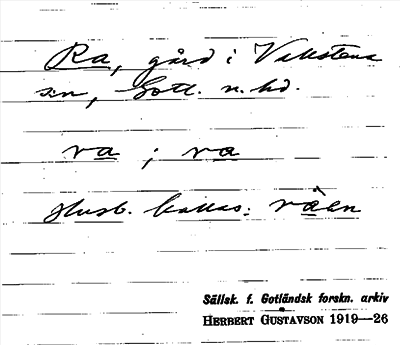 Ra, gård i Vallstena
sn, Gotl. n. hd.
ra ; ra
Husb. kallas: råen
Sällsk. f. Gotländsk forskn. arkiv
HERBERT GUSTAVSON 1919—26